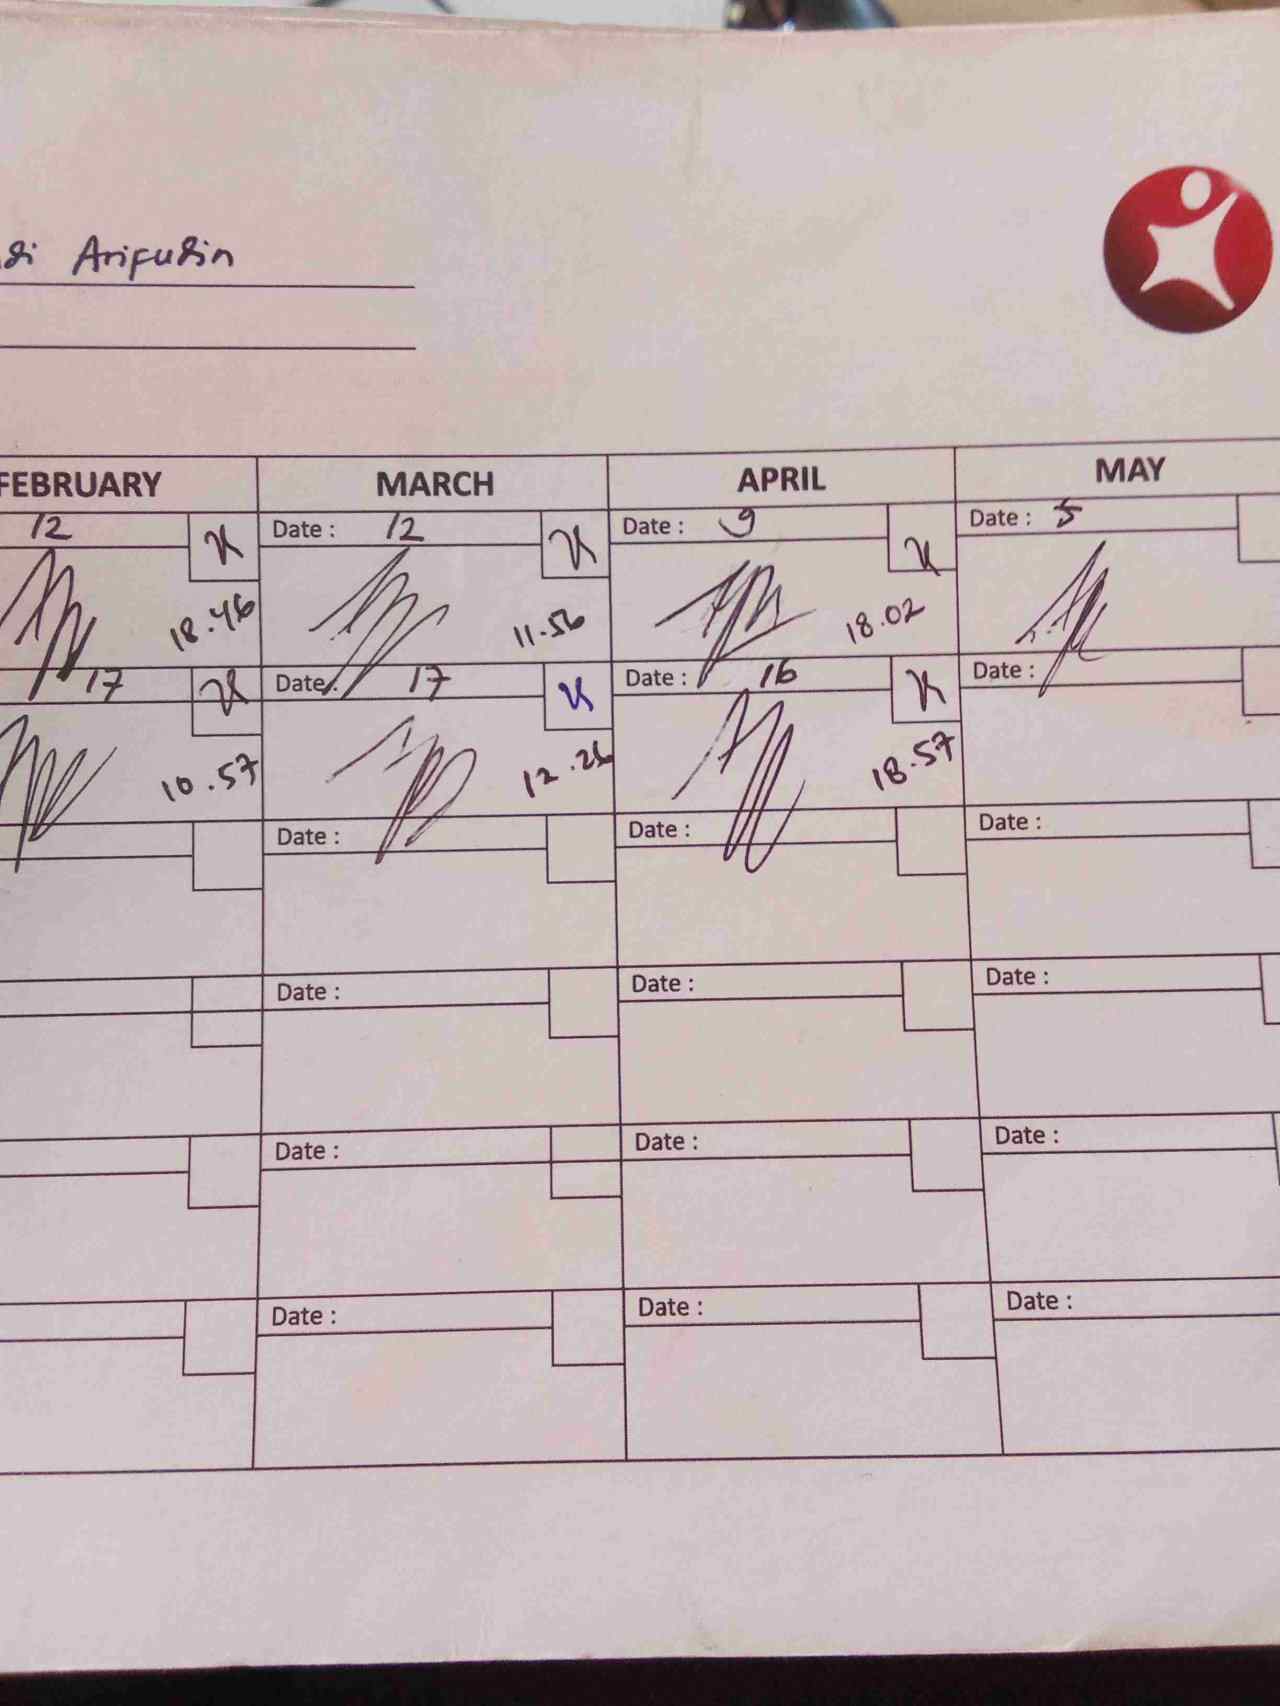 Arifudin
FEBRUARY MARCH APRIL MAY
12 Date : 12 Date : 9 Date : 5
18.46 11.56 18.02
17 Date : 17 Date : 16 Date :
10.57 12.26 18.57
Date : Date : Date :
Date : Date : Date :
Date : Date : Date :
Date : Date : Date :